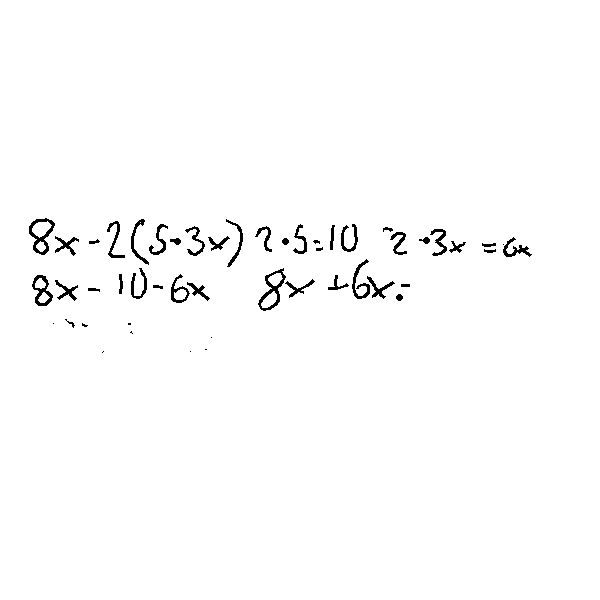 8x - 2(5·3x) 2·5=10 -2·3x = 6x
8x - 10 - 6x 8x + 6x=